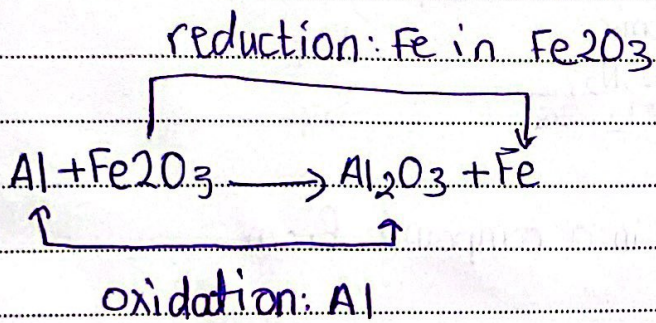 reduction: Fe in Fe2O3
Al + Fe2O3 → Al₂O3 + Fe
oxidation: Al